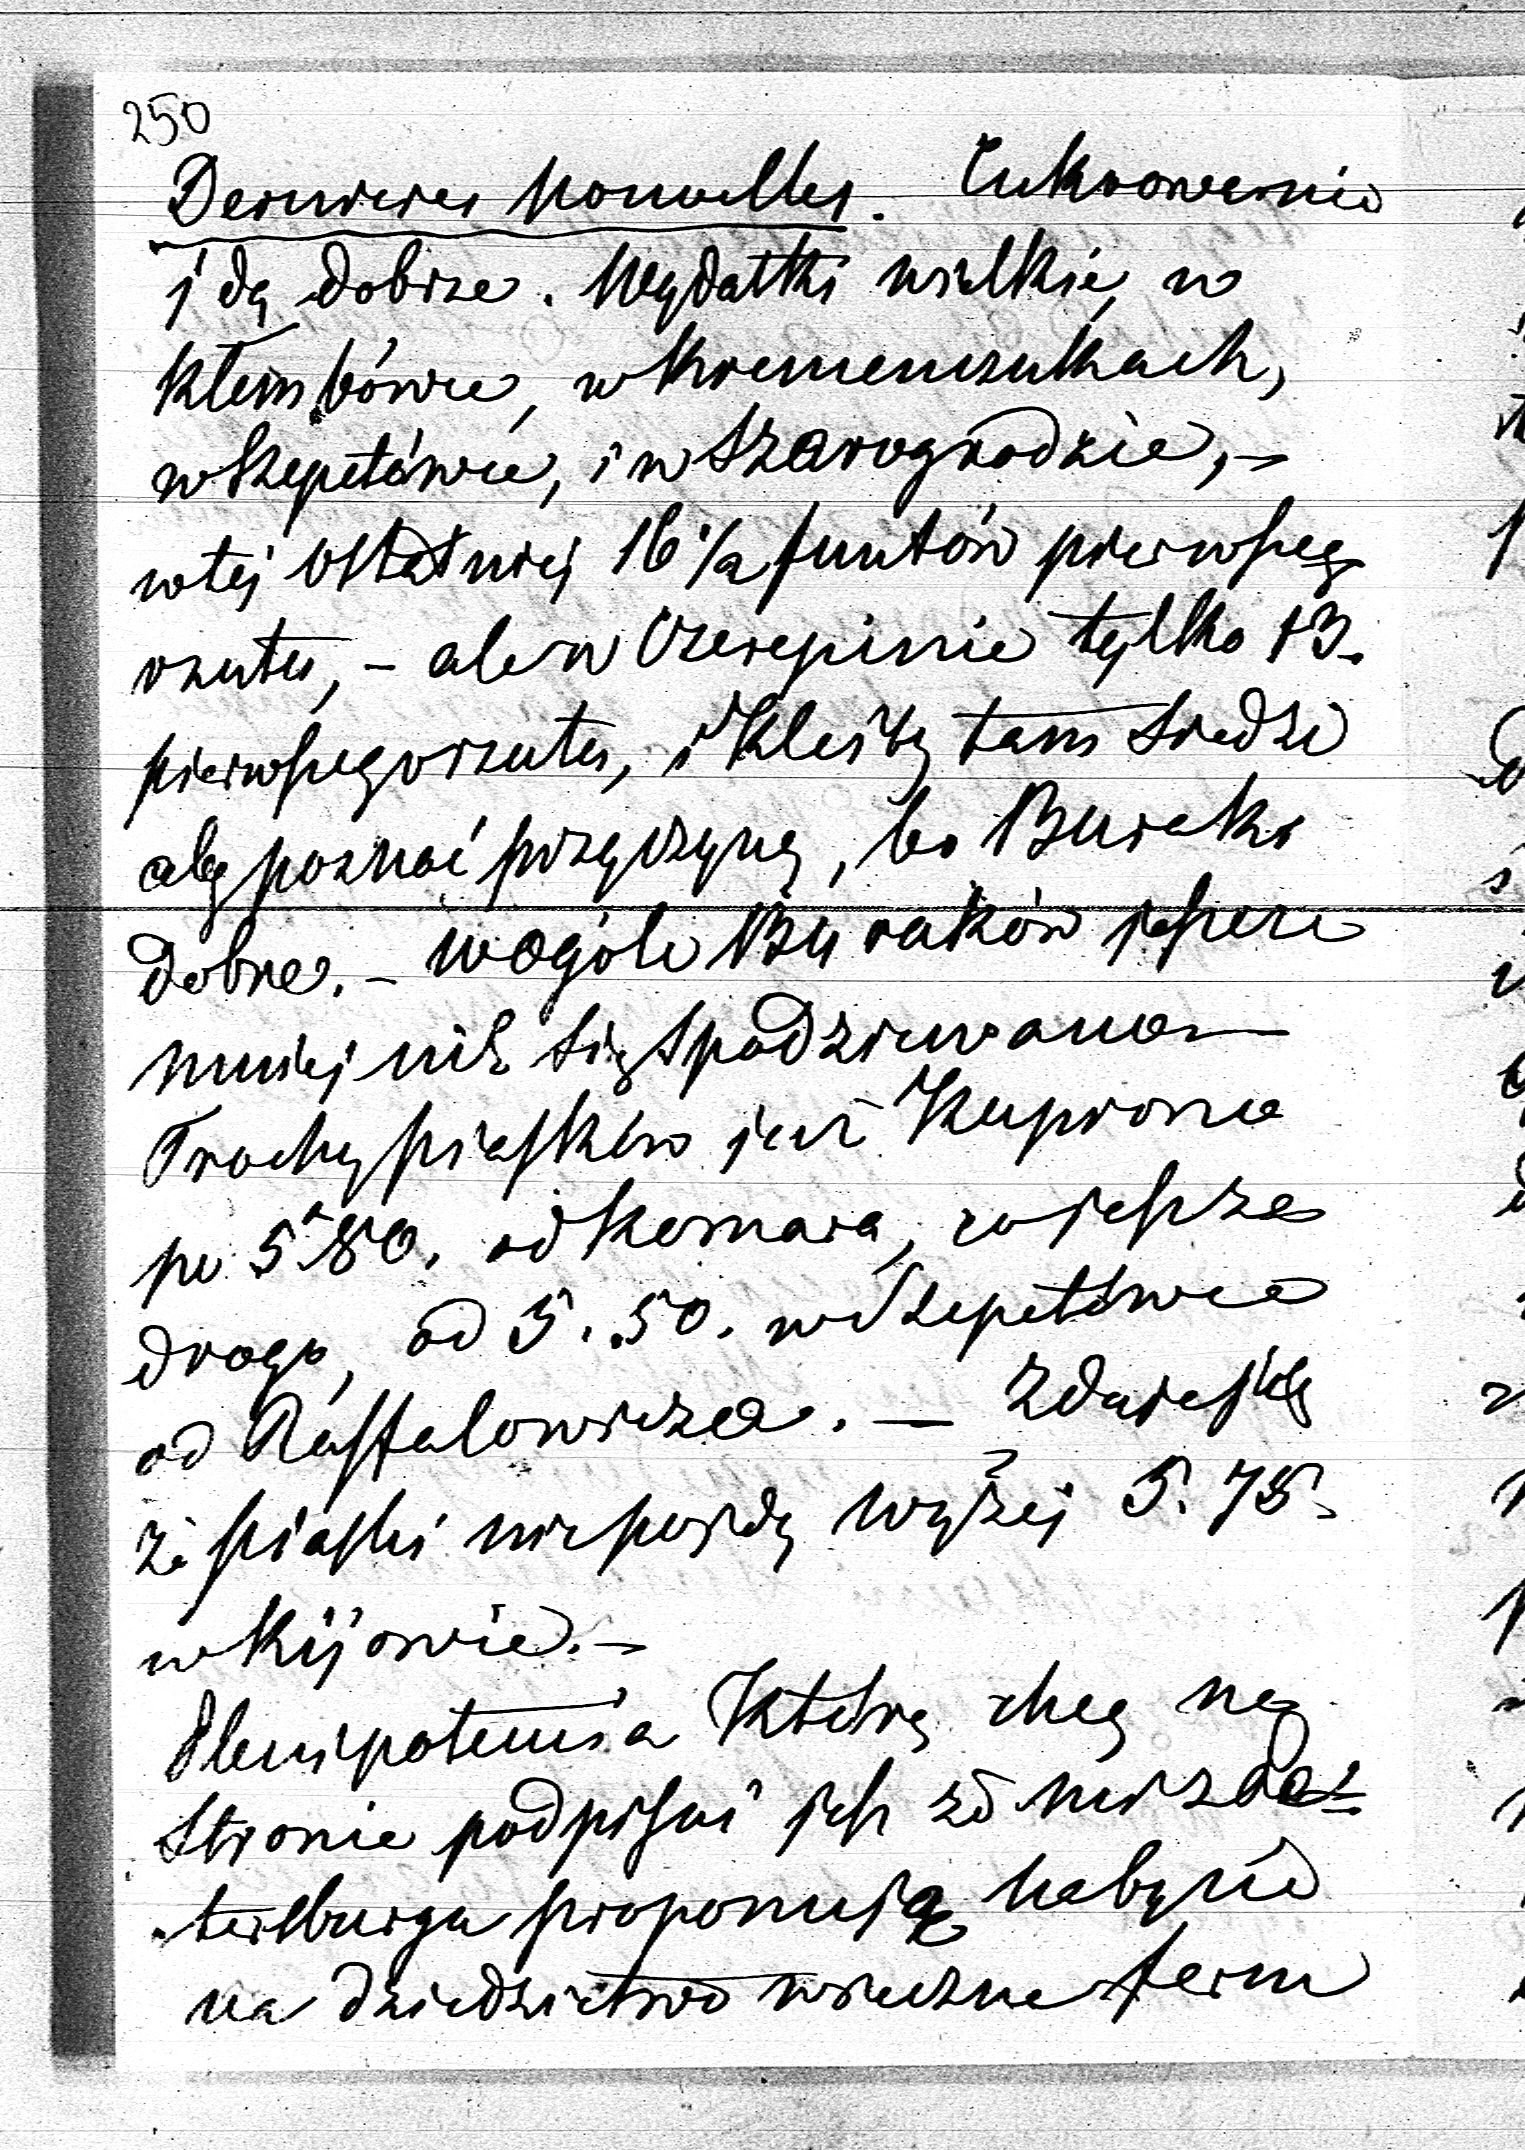 250
Dernieres Nouvelles. Cukrownie
idą dobrze. Wydatki wielkie, w
Klembówce, w Kremenczukach,
w Szepetówce, i w Szarogrodzie, –
w tej ostatniej 16 1/2 funtów pierwszego
rzutu, – ale w Czerepinie tylko 13.
pierwszego rzutu, i Kleity tam siedzi
aby poznać przyczynę, bo Buraki
dobre. – Wogóle Buraków jeszcze
mniej niż się spodziewano –
Trochę piasków już Kupiono
po 5.80. od Komara, co jeszcze
drogo, od 5.50. w Szepetówce
od Raffalowicza. – Zdaje się
że piaski nie pojdą wyżej 5.75.
w Kijowie. –
Plenipotencia Którą chcą na
stronie podpisać jest że mi z Pe=
tersburga proponują nabycie
na dziedzictwo wieczne ferm